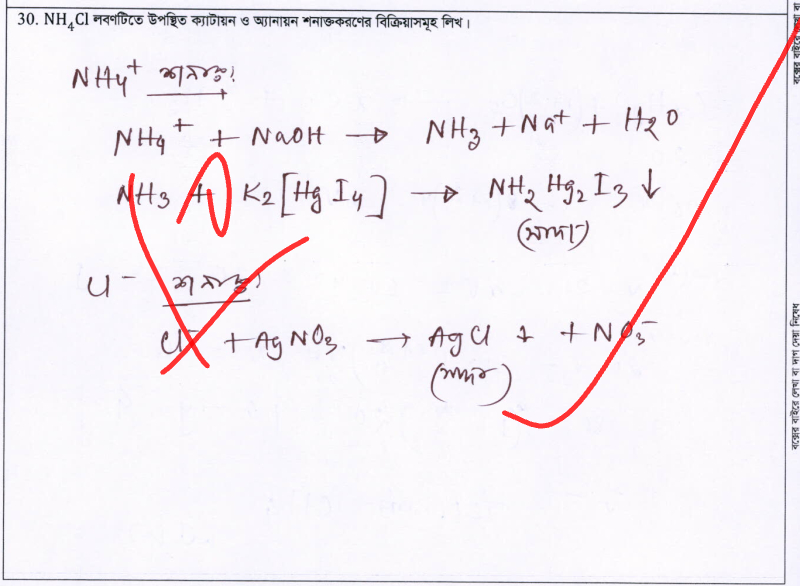 30. NH4Cl লবণটিতে উপস্থিত ক্যাটায়ন ও অ্যানায়ন শনাক্তকরণের বিক্রিয়াসমূহ লিখ।
NH4+ শনাক্ত:
NH4+ + NaOH → NH3 + Na+ + H2O
NH3 + K2[HgI4] → NH2Hg2I3 ↓
(সাদা)
Cl- শনাক্ত:
Cl- + AgNO3 → AgCl ↓ + NO3-
(সাদা)
বক্সের বাইরে লেখা বা দাগ দেয়া নিষেধ